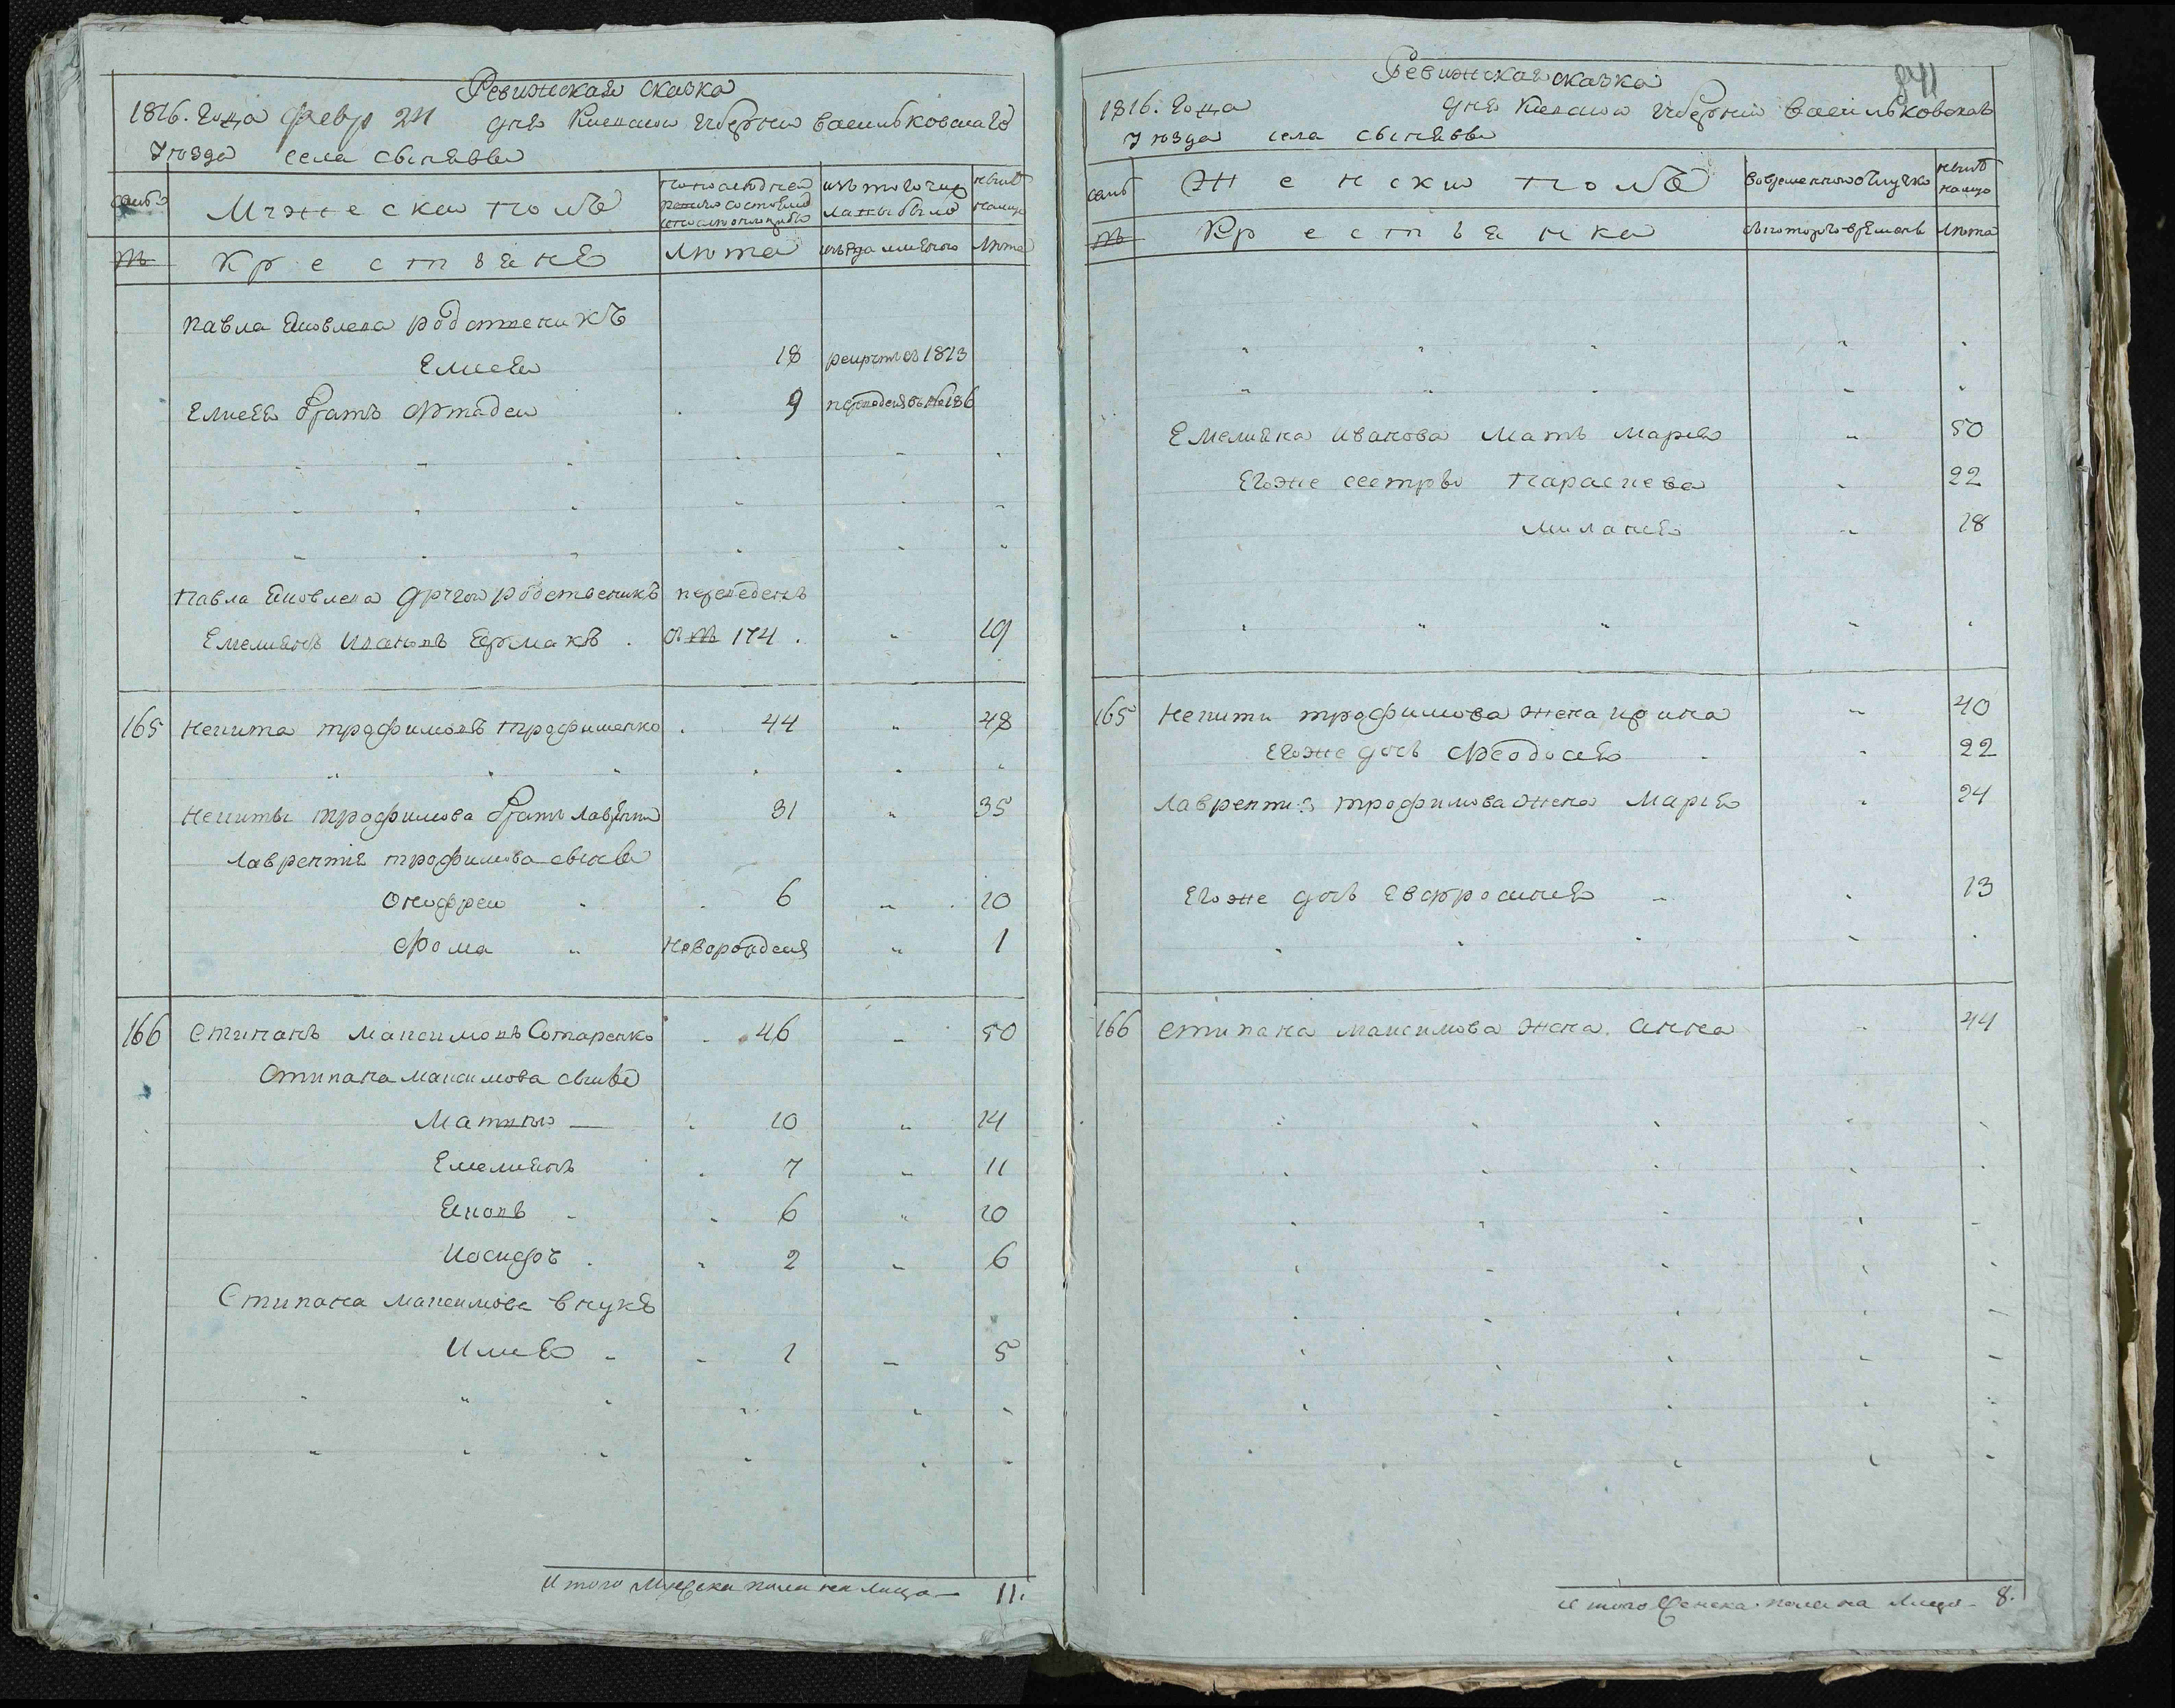 Ревижская сказка
1816. Года февр 24 дня Киевской Губернии васильковскаго
Уезда села свинявы
семьи
Мужеска полъ
по последней ревизіи состояло
изъ того числа выбыло
ныне на лицо
№
Крестьяне
лѣта
когда имянно
лѣта
павла Яковлева родственикъ
Елисей 18 рекрутъ въ 1813
Елисея братъ Фтадей 9 переведенъ въ № 186
павла Яковлева другой родственикъ переведенъ
Емелиянъ Ивановъ Ермакъ въ № 174 19
165 Никита трофимовъ трофименко 44 48
Никиты трофимова братъ лаврѣнти 31 35
лаврентия трофимова сыны
Онофрей 6 10
Фома новорожденъ 1
166 Стипанъ максимовъ Сотаренко 46 50
Стипана максимова сыны
Матвѣй 10 14
Емелиянъ 7 11
Яковъ 6 10
Иосифъ 2 6
Стипана максимова внукъ
Илия 1 5
Итого Мужска пола на лицо 11.
841
Ревижская сказка
1816. Года дня Киевской Губернии васильковскаго
Уезда села свинявы
семьи
Женски полъ
во временной отлучке
ныне на лицо
№
Крестьянки
съ котораго времени
лѣта
Емелияна иванова мать мария 50
Егоже сестры параскева 22
миланія 18
165 Никити трофимова жена ирина 40
Егоже дочь Феодосия 22
лаврентия трофимова жена Марія 24
Егоже дочь Евфросиния 13
166 стипана максимова жена анна 44
Итого Женска пола на Лицо 8.